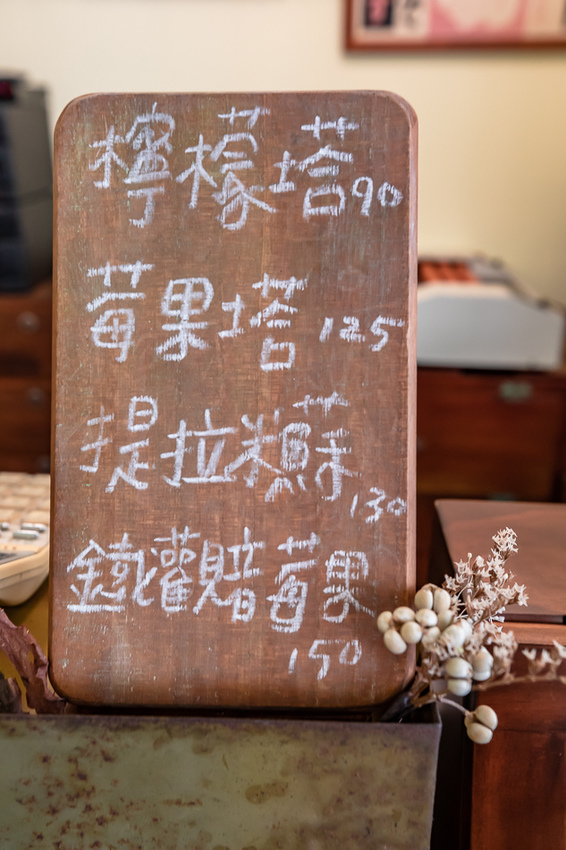 檸檬塔90
莓果塔125
提拉米蘇130
鐵觀音莓果
150